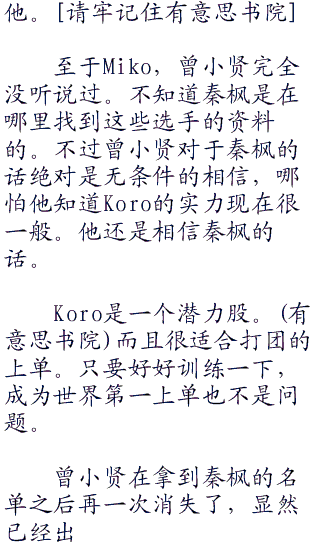 他。[请牢记住有意思书院]
　　至于Miko，曾小贤完全
没听说过。不知道秦枫是在
哪里找到这些选手的资料
的。不过曾小贤对于秦枫的
话绝对是无条件的相信，哪
怕他知道Koro的实力现在很
一般。他还是相信秦枫的
话。
　　Koro是一个潜力股。(有
意思书院)而且很适合打团的
上单。只要好好训练一下，
成为世界第一上单也不是问
题。
　　曾小贤在拿到秦枫的名
单之后再一次消失了，显然
已经出